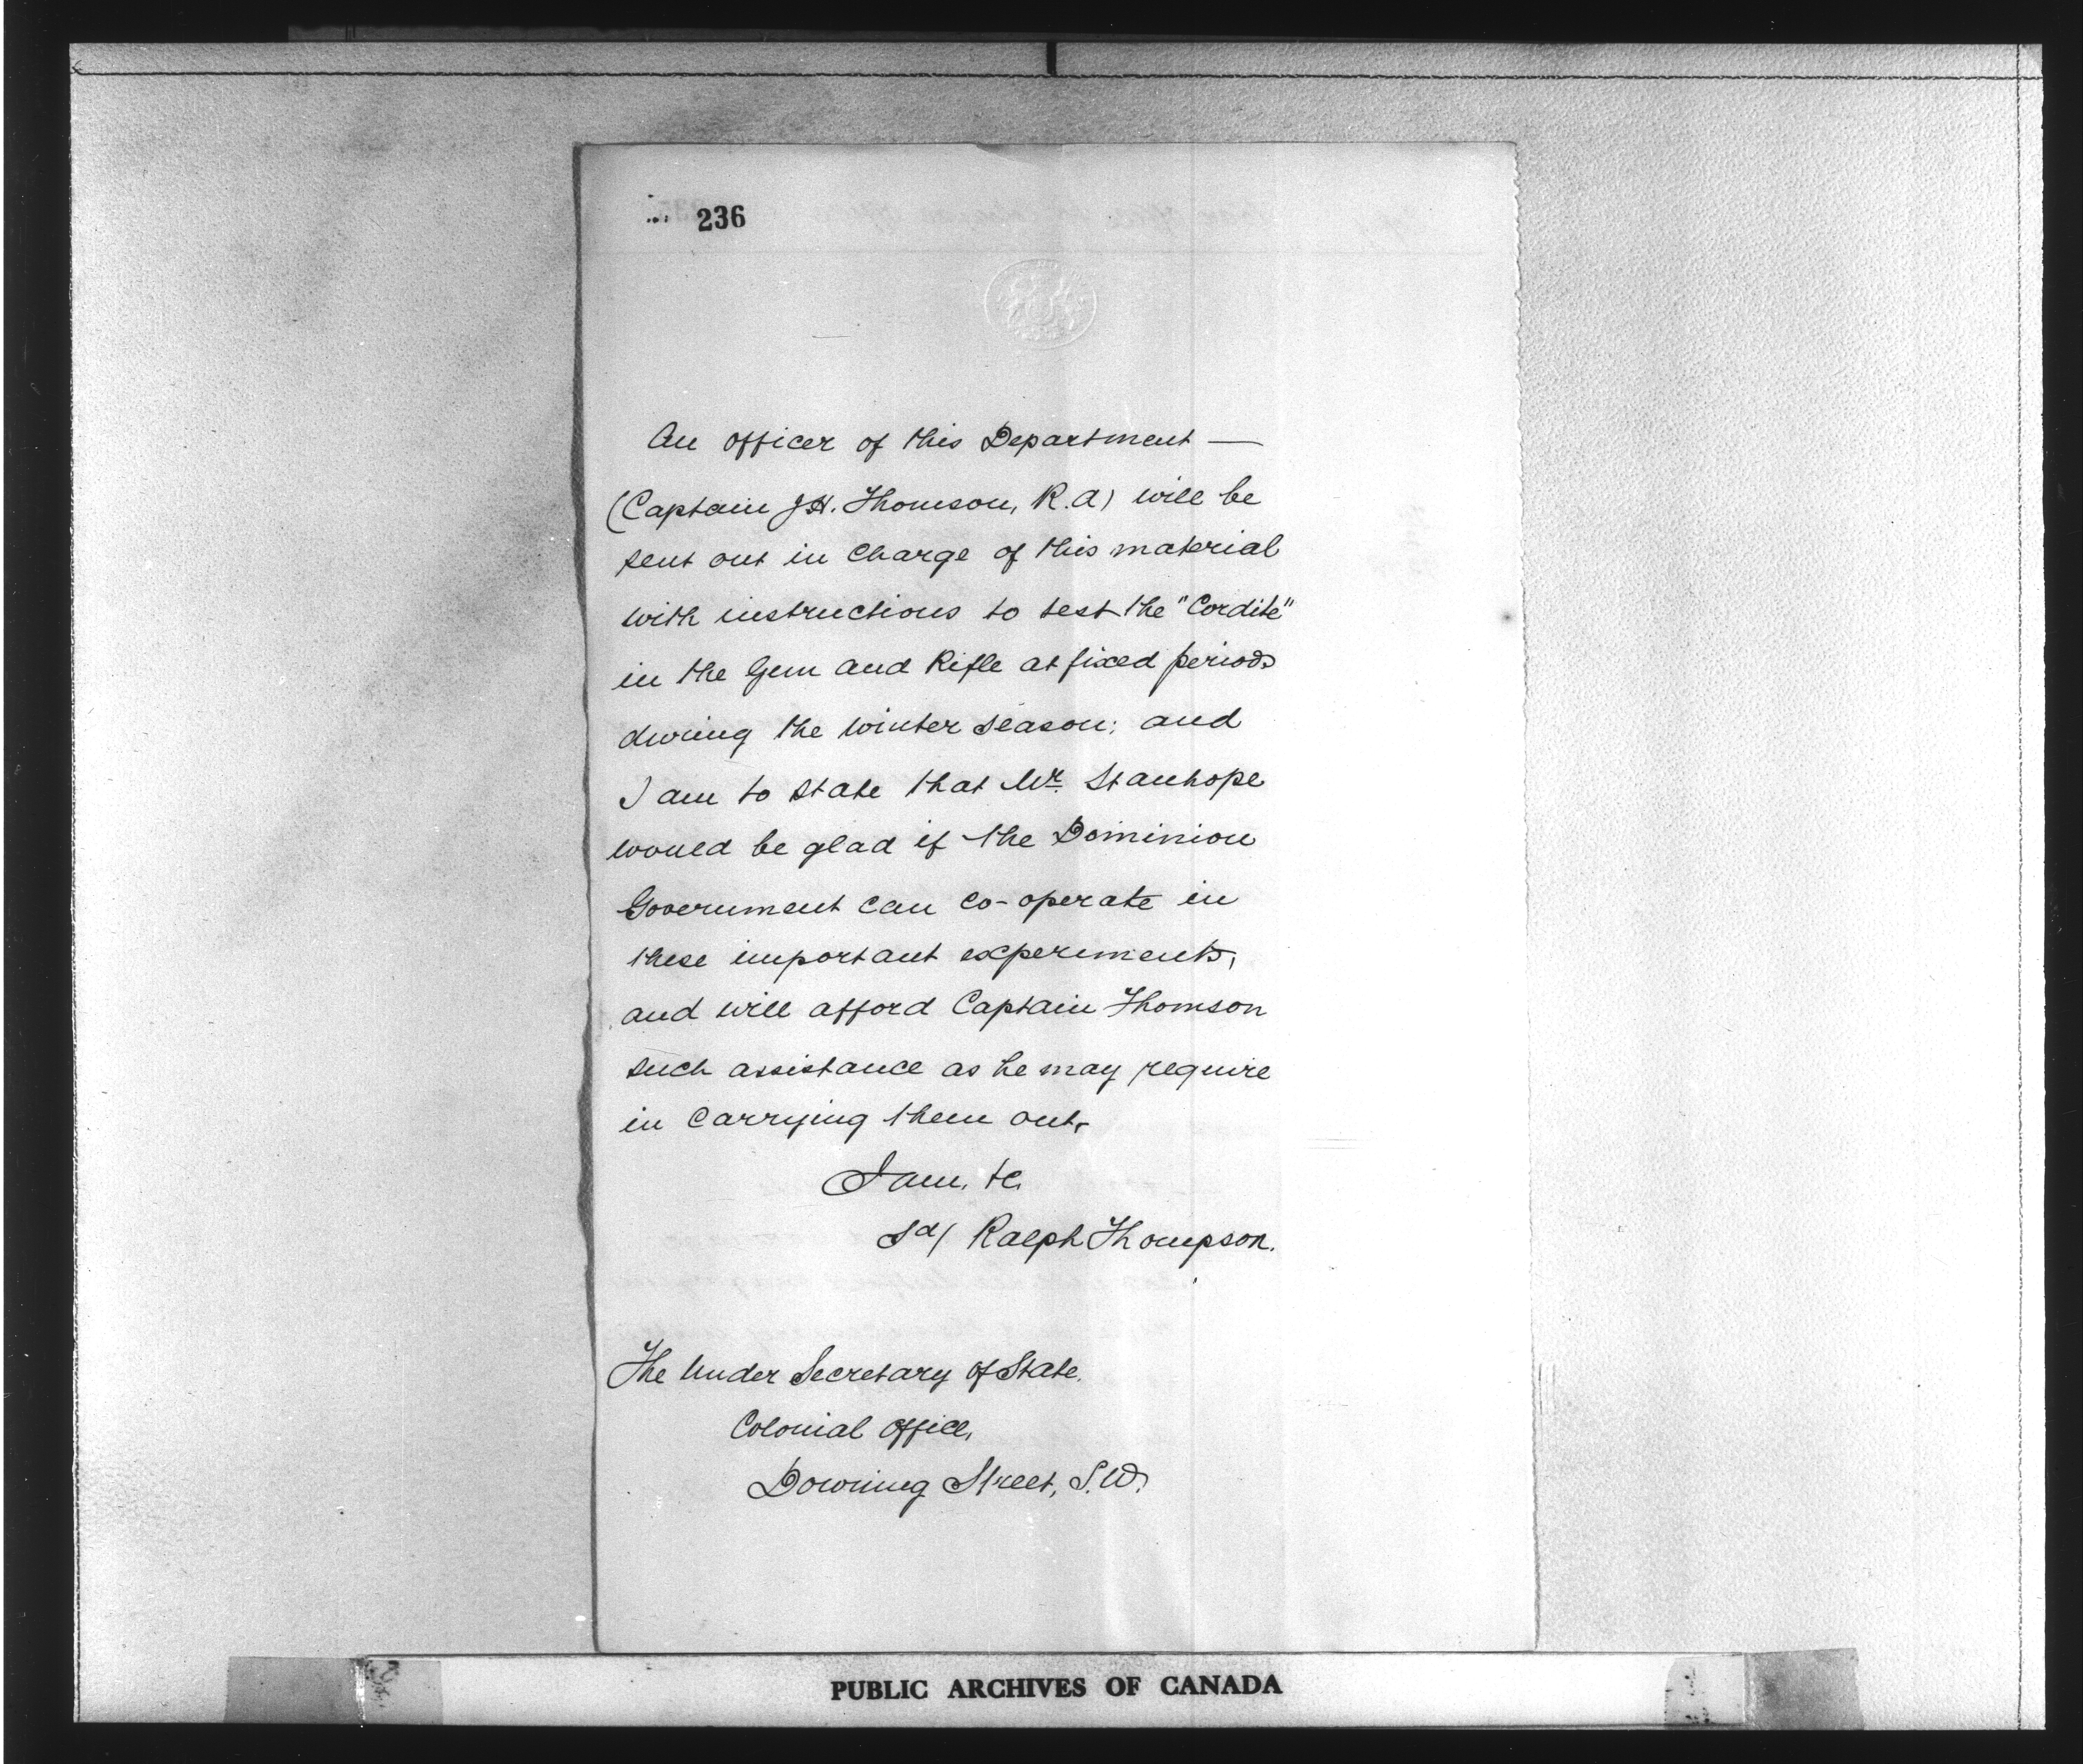 236
An officer of this Department —
(Captain J.H. Thomson, R.A) will be
sent out in charge of this material
with instructions to test the "Cordite"
in the Gun and Rifle at fixed periods
during the winter season; and
I am to state that Mr. Stanhope
would be glad if the Dominion
Government can co-operate in
these important experiments,
and will afford Captain Thomson
such assistance as he may require
in carrying them out.
I am, &c.
Sd/ Ralph Thompson.
The Under Secretary of State.
Colonial Office,
Downing Street, S.W.
PUBLIC ARCHIVES OF CANADA